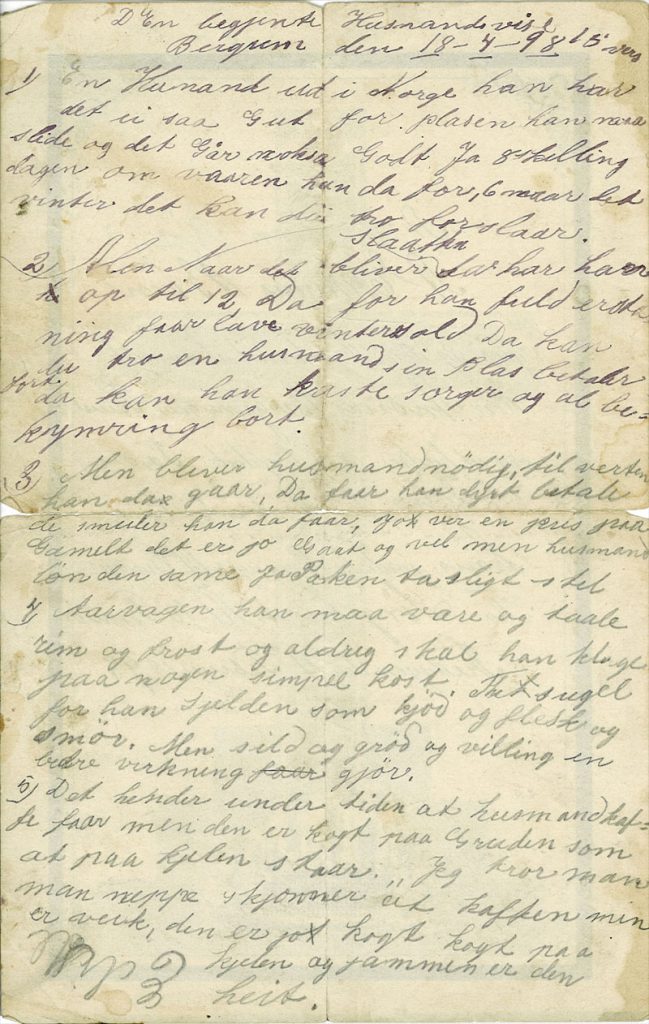 DEn begjente Husmandsvise
Bergum den 18-4-98 15 vers
1) En Husmand ud i Norge han har
det ei saa Gut for plasen han maa
slide og det Gaar noksa Godt Ja 8 skelling
dagen om vaaren han da for, 6 naar det
vinter det kan du tro forslaar.
slaatten
2 Men Naar det bliver har han
op til 12, Da for han fuld ersta
ning faar lave vintersold Da kan
du tro en husmand sin Plas betaler
fort
da kan han kaste sorger og al be=
kymring bort.
3 Men bliver husmand nödig, til verten
han da gaar, Da faar han dyrt betale
de smuler han da faar, jo ver en pris paa
Gamelt det er jo Gaat og vel men husmand
lön den same ja Paken ta sligt stel
4 Aarvagen han maa være og taale
rim og frost og aldreg skal han klage
paa nogen simpel kost. sugel
for han sjelden som kjöd og flesk og
smör. Men sild og gröd og villing en
bedre virkning faar gjör.
5) Det hender under tiden at husmand kaf=
fe faar men den er kogt paa Gruden som
at paa kjelen staar. Jeg tror man
man neppe skjönner at kaffen min
er veik, den er jo kogt kogt paa
kjelen og jammen er den
heit.